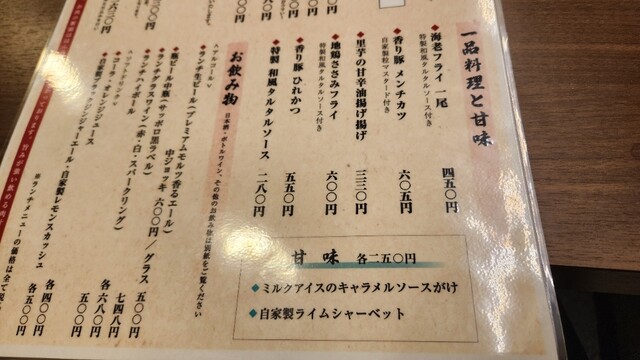 一品料理と甘味
◆海老フライ 一尾 四五〇円
特製和風タルタルソース付き
◆香り豚 メンチカツ 六〇五円
自家製粒マスタード付き
◆里芋の甘辛油揚げ揚げ 三三〇円
◆地鶏ささみフライ 六〇〇円
特製和風タルタルソース付き
◆香り豚 ひれかつ 五五〇円
◆特製 和風タルタルソース 二八〇円
甘味 各二五〇円
◆ミルクアイスのキャラメルソースがけ
◆自家製ライムシャーベット
お飲み物
日本酒・ボトルワイン、その他のお飲み物は別紙をご覧ください
<アルコール>
◆ランチ生ビール(プレミアムモルツ香るエール)
中ジョッキ 六〇〇円/グラス 五〇〇円
◆瓶ビール中瓶(サッポロ黒ラベル) 七四八円
◆ランチグラスワイン(赤・白・スパークリング) 各六八〇円
◆ランチハイボール 五〇〇円
<ソフトドリンク>
◆コーラ・オレンジジュース 各四〇〇円
ジンジャーエール・自家製レモンスカッシュ 各五〇〇円
※ランチメニューの価格は全て